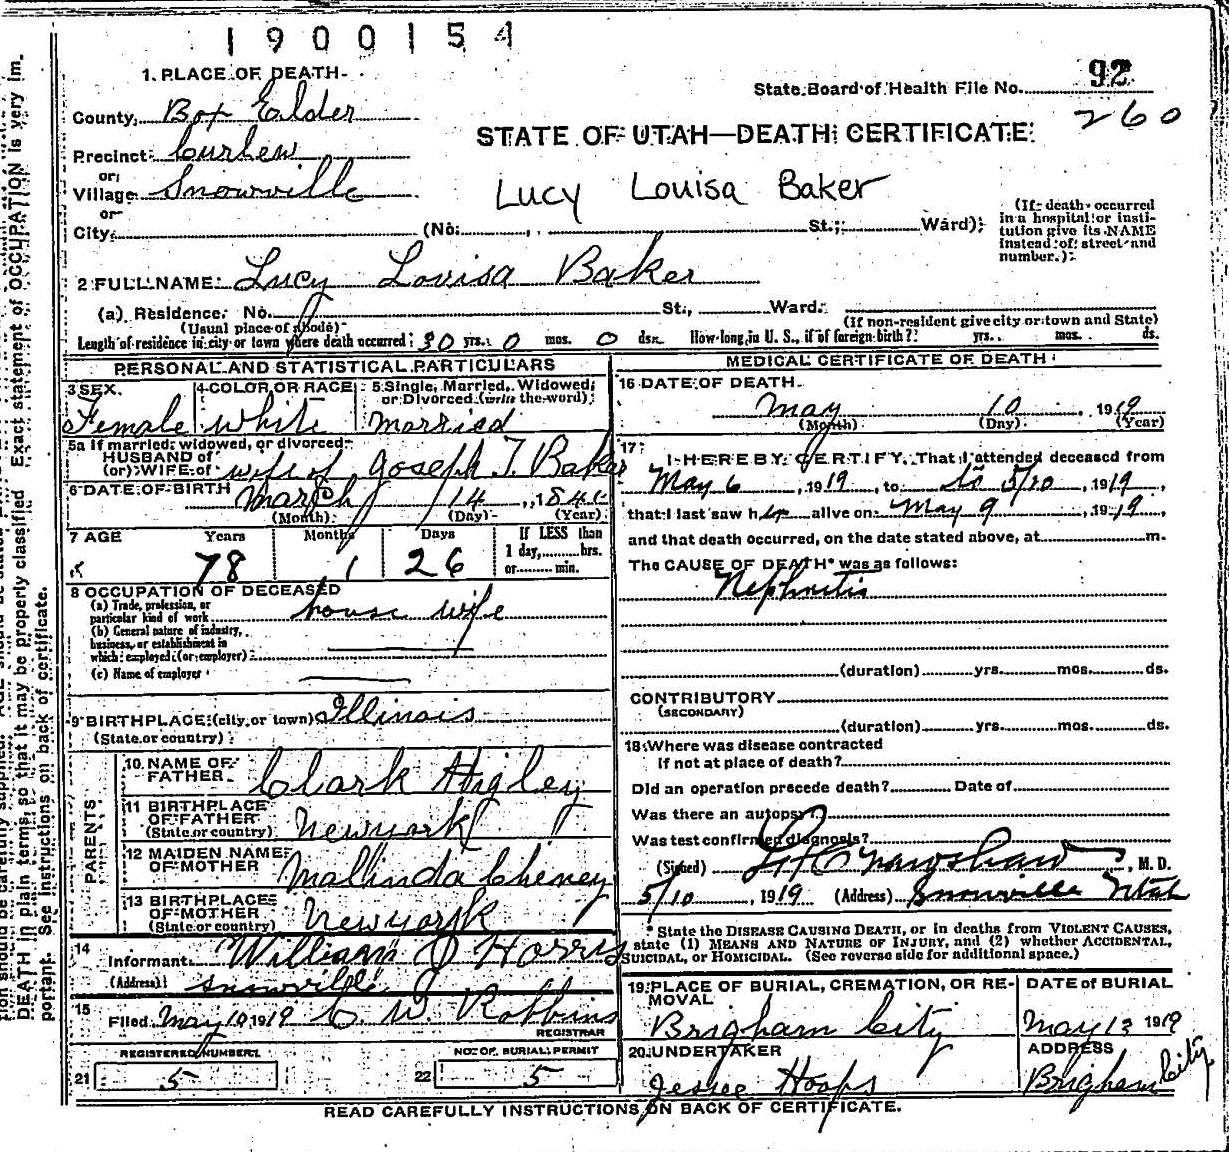 1900154
1. PLACE OF DEATH
State Board of Health File No. 92
260
County, Box Elder
STATE OF UTAH—DEATH CERTIFICATE
Precinct Curlew
or
Village Snowville
Lucy Louisa Baker
or
City, (No. St.; Ward)
(If death occurred in a hospital or institution give its NAME instead of street and number.)
2 FULL NAME Lucy Louisa Baker
(a) Residence. No. St., Ward.
(Usual place of abode) (If non-resident give city or town and State)
Length of residence in city or town where death occurred 30 yrs. 0 mos. 0 ds. How long in U. S., if of foreign birth? yrs. mos. ds.
PERSONAL AND STATISTICAL PARTICULARS
3 SEX. 4 COLOR OR RACE 5 Single, Married, Widowed, or Divorced (write the word)
Female white married
5a If married, widowed, or divorced
HUSBAND of
(or) WIFE of wife of Joseph T. Baker
6 DATE OF BIRTH March 14, 184
(Month) (Day) (Year)
7 AGE Years Months Days If LESS than
1 day, hrs.
or min.
78 1 26
8 OCCUPATION OF DECEASED
(a) Trade, profession, or particular kind of work house wife
(b) General nature of industry, business, or establishment in which employed (or employer)
(c) Name of employer
9 BIRTHPLACE (city or town) Illinois
(State or country)
PARENTS
10. NAME OF FATHER Clark Higley
11 BIRTHPLACE OF FATHER (State or country) Newyork
12 MAIDEN NAME OF MOTHER Mallinda Cheney
13 BIRTHPLACE OF MOTHER (State or country) Newyork
14 Informant William J Harris
(Address) Snowville
15 Filed May 10 1919 C. W. Robbins
REGISTRAR
REGISTERED NUMBER NO. OF BURIAL PERMIT
21 5 22 5
MEDICAL CERTIFICATE OF DEATH
16 DATE OF DEATH
May 10, 1919
(Month) (Day) (Year)
17 I HEREBY CERTIFY, That I attended deceased from
May 6, 1919, to to 5/10, 1919,
that I last saw her alive on May 9, 1919,
and that death occurred, on the date stated above, at m.
The CAUSE OF DEATH* was as follows:
Nephritis
(duration) yrs. mos. ds.
CONTRIBUTORY
(SECONDARY)
(duration) yrs. mos. ds.
18 Where was disease contracted
if not at place of death?
Did an operation precede death? Date of
Was there an autopsy?
Was test confirmed diagnosis?
(Signed) Crawshaw, M. D.
5/10, 1919 (Address) Snowville Utah
* State the DISEASE CAUSING DEATH, or in deaths from VIOLENT CAUSES,
state (1) MEANS AND NATURE OF INJURY, and (2) whether ACCIDENTAL,
SUICIDAL, OR HOMICIDAL. (See reverse side for additional space.)
19 PLACE OF BURIAL, CREMATION, OR REMOVAL DATE of BURIAL
Brigham City May 13 1919
20 UNDERTAKER ADDRESS
Jessee Hoops Brigham City
READ CAREFULLY INSTRUCTIONS ON BACK OF CERTIFICATE.
DEATH in plain terms, so that it may be properly classified Exact statement of OCCUPATION is very im-
portant. See instructions on back of certificate.